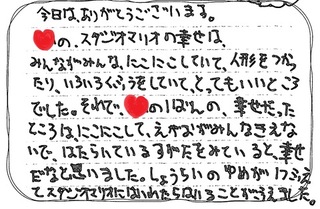 今日は、ありがとうございます。
の、スタジオマリオの幸せは、
みんながみんな、にこにこしていて、人形をつかっ
たり、いろいろくふうをしていて、とってもいいところ
でした。それで、のいちばんの、幸せだった
ところはにこにこして、えがおがみんなきえな
いで、はたらいているすがたをみていると、幸せ
だなと思いました。しょうらいのゆめが1つふえ
てスタジオマリオにはいれたらなということがふえました。